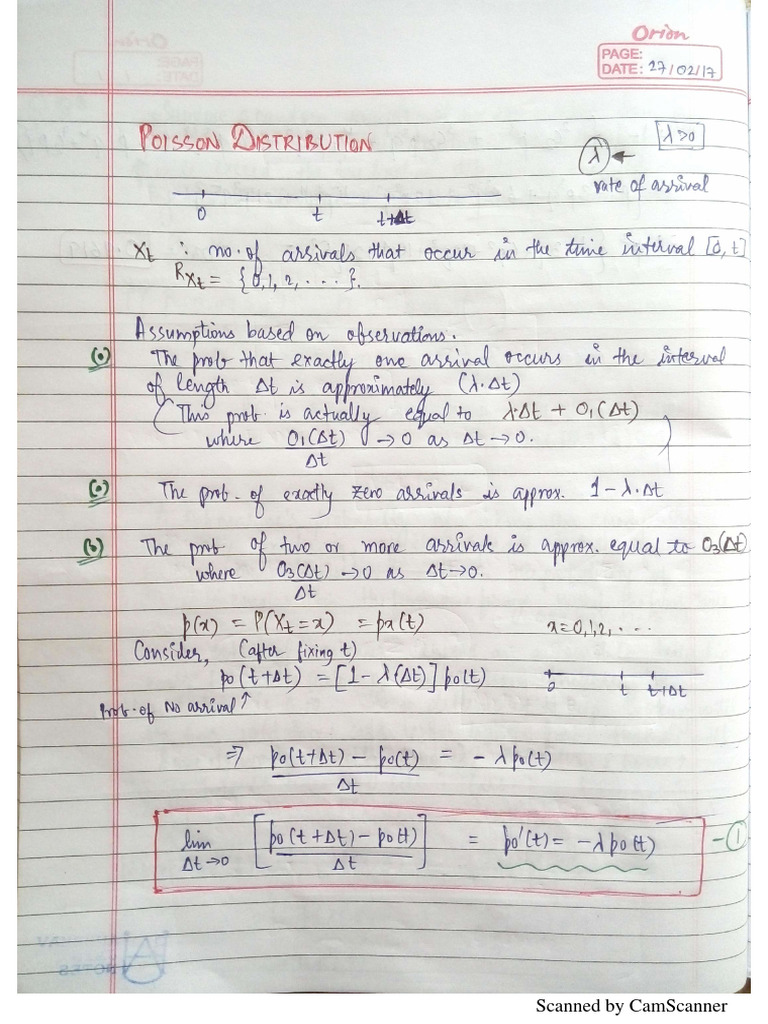 Orion
PAGE:
DATE: 27/02/17
POISSON DISTRIBUTION
λ>0
λ ←
rate of arrival
0 t t+Δt
Xt : no. of arrivals that occur in the time interval [0, t]
RXt = {0, 1, 2, ....}.
Assumptions based on observations.
(a) The prob that exactly one arrival occurs in the interval
of length Δt is approximately (λ.Δt)
(This prob. is actually equal to λ.Δt + O1(Δt)
where O1(Δt)/Δt → 0 as Δt→0. )
(o) The prob. of exactly zero arrivals is approx. 1-λ.Δt
(b) The prob of two or more arrivals is approx. equal to O3(Δt)
where O3(Δt)/Δt → 0 as Δt→0.
p(x) = P(Xt = x) = px(t) x=0,1,2,....
Consider, (after fixing t)
po(t+Δt) = [1-λ(Δt)] po(t)
0 t t+Δt
Prob. of No arrival ↑
⇒ po(t+Δt) - po(t)/Δt = -λpo(t)
lim Δt→0 [po(t+Δt) - po(t)/Δt] = po'(t) = -λpo(t) -①
Scanned by CamScanner